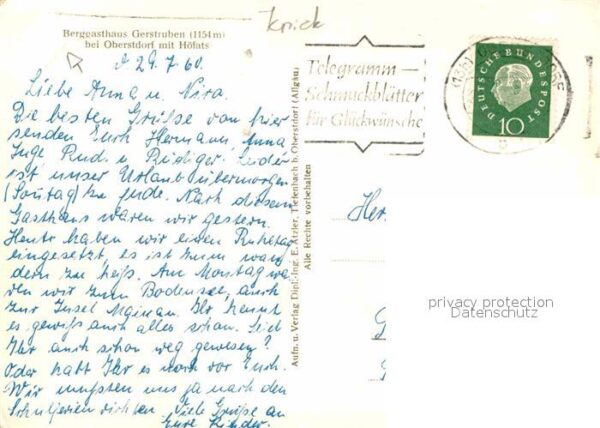 krick
Berggasthaus Gerstruben (1154 m)
bei Oberstdorf mit Höfats
d 29.7.60.
Liebe Anna u. Nira.
Die besten Grüße von hier
senden Euch Hermann, Anna
Inge Rud. u. Rüdiger. Leider
ist unser Urlaub übermorgen
(Sontag) zu Ende. Nach diesem
Gasthaus waren wir gestern.
Heute haben wir einen Ruhetag
eingesetzt, es ist zum wan
dern zu heiß. Am Montag wa
ren wir zum Bodensee, auch
zur Insel Mainau. Ihr kennt
es gewiß auch alles schon. Seid
Ihr auch schon weg gewesen?
Oder habt Ihr es noch vor Euch.
Wir mußten uns ja nach den
Schulferien richten. Viele Grüße an
Eure Kinder.
Aufn. u. Verlag Dipl.-Ing. E. Atzler, Tiefenbach b. Oberstdorf (Allgäu)
Alle Rechte vorbehalten
Telegramm —
Schmuckblätter
für Glückwünsche
DEUTSCHE BUNDESPOST
10
Her
privacy protection
Datenschutz